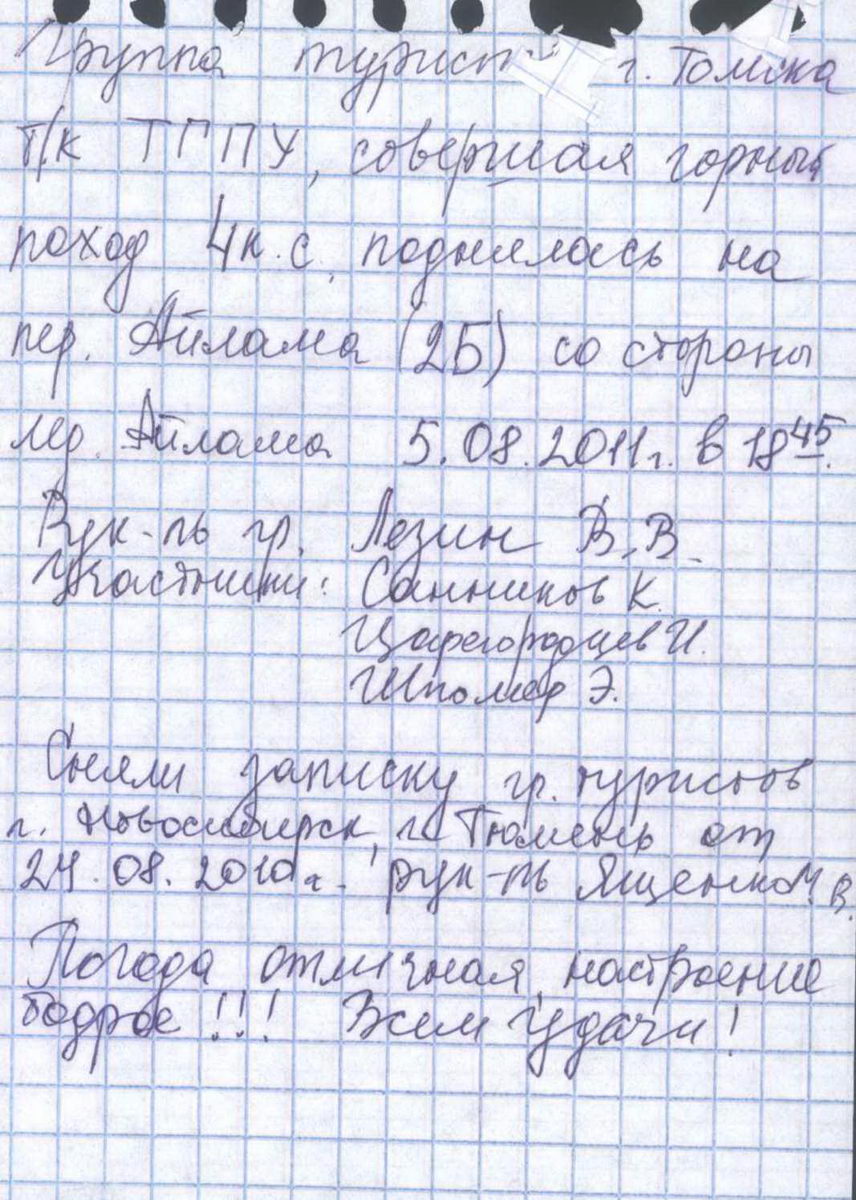 Группа турист г. Томска
т/к ТГПУ, совершая горный
поход 4 к.с. поднялась на
пер. Айлама (2Б) со стороны
лед. Айлама 5.08.2011г. в 18 45.
Рук-ль гр. Лезин В.В.
Участники: Санников К.
Царегородцев И.
Шпомер Э.
Сняли записку гр. туристов
г. Новосибирск, г. Тюмень от
24.08.2010г. рук-ль Ященко М.В.
Погода отличная, настроение
бодрое!!! Всем Удачи!